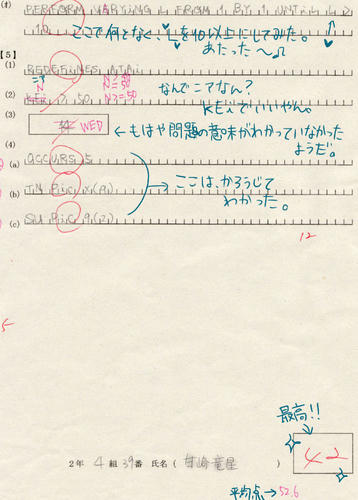 (f) PERFORM VARYING L FROM 1 BY 1 UNTIL L >
10
ここで何となく、Lを10以上にしてみた。
あたった〜♫
【5】
(1) REDEFINES ATAi
なんでこてなん?
KEiでいいやん。
(2) KEi > 50
N >= 50
(3) WED
←もはや問題の意味がわかっていなかった
ようだ。
(4)
(a) OCCURS 5
(b) PiC X(
ここは、かろうじて
わかった。
(c) PiC 9(2)
12
最高!!
42
2年 4組 39番 氏名( 甘崎竜星 )
平均点→52.6